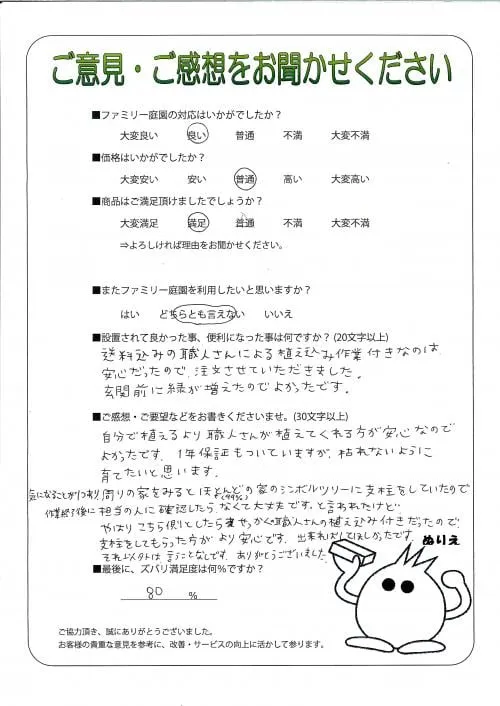 ご意見・ご感想をお聞かせください
■ファミリー庭園の対応はいかがでしたか？
大変良い 良い 普通 不満 大変不満
■価格はいかがでしたか？
大変安い 安い 普通 高い 大変高い
■商品はご満足頂けましたでしょうか？
大変満足 満足 普通 不満 大変不満
⇒よろしければ理由をお聞かせください。
■またファミリー庭園を利用したいと思いますか？
はい どちらとも言えない いいえ
■設置されて良かった事、便利になった事は何ですか？(20文字以上)
送料込みの職人さんによる植え込み作業付きなのは、
安心だったので、注文させていただきました。
玄関前に緑が増えたのでよかったです。
■ご感想・ご要望などをお書きくださいませ。(30文字以上)
自分で植えるより職人さんが植えてくれる方が安心なので
よかったです。1年保証もついていますが、枯れないように
育てたいと思います。
気になることが1つあり、周りの家をみるとほとんどの家のシンボルツリーに支柱をしていたので
(99%)
作業終了後に担当の人に確認したら、なくて大丈夫です。と言われたけど
やはりこちら側としたらせっかく職人さんの植え込み付きだったので、
支柱をしてもらった方がより安心です。出来ればしてほしかったです。
それ以外は言うことなしです。ありがとうございました。
ぬりえ
■最後に、ズバリ満足度は何%ですか？
80 %
ご協力頂き、誠にありがとうございました。
お客様の貴重な意見を参考に、改善・サービスの向上に活かして参ります。